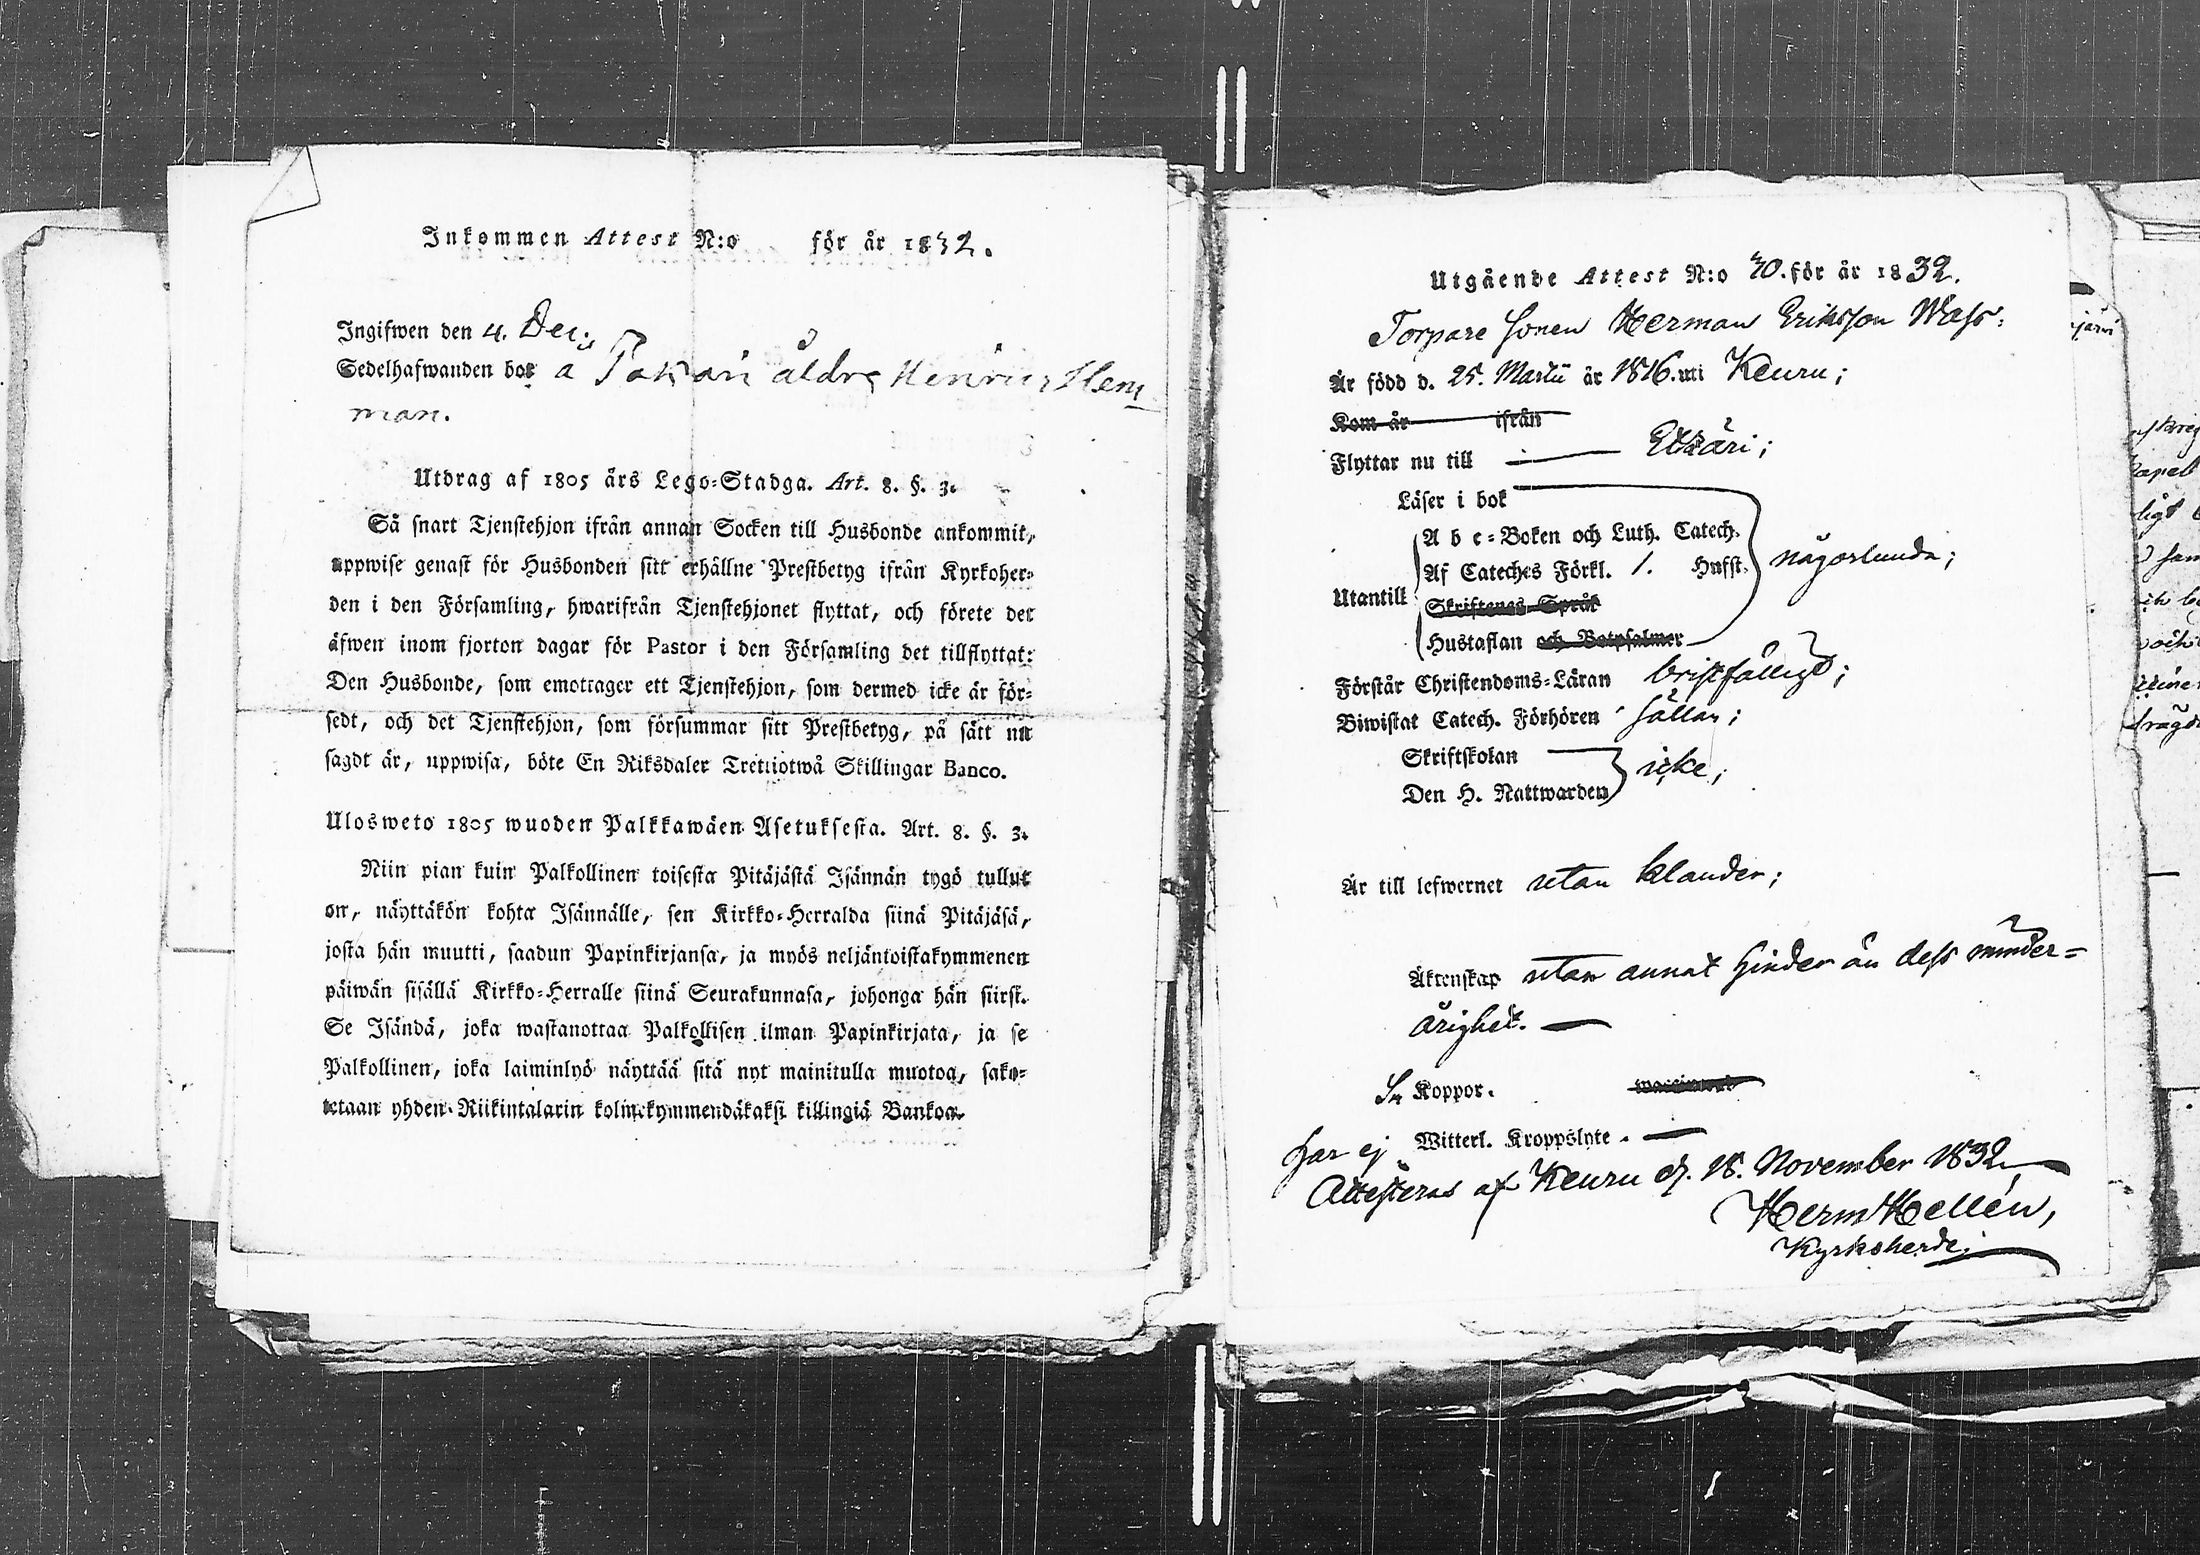 Inkommen Attest N:o för år 1832.
Ingifwen den 4. Dec.
Sedelhafwanden bor a Pakari äldre Henrics Hem
man.
Utdrag af 1805 års Lego-Stadga. Art. 8. §. 3.
Så snart Tjenstehjon ifrån annan Socken till Husbonde ankommit,
uppwise genast för Husbonden sitt erhållne Prestbetyg ifrån Kyrkoher-
den i den Församling, hwarifrån Tjenstehjonet flyttat, och förete det
äfwen inom fjorton dagar för Pastor i den Församling det tillflyttat:
Den Husbonde, som emottager ett Tjenstehjon, som dermed icke är för-
sedt, och det Tjenstehjon, som försummar sitt Prestbetyg, på sätt nu
sagdt är, uppwisa, böte En Riksdaler Trettiotwå Skillingar Banco.
Ulosweto 1805 wuoden Palkkawäen Asetuksesta. Art. 8. §. 3.
Niin pian kuin Palkollinen toisesta Pitäjästä Isännän tygö tullut
on, näyttäkön kohta Isännälle, sen Kirkko-Herralda siinä Pitäjäsä,
josta hän muutti, saadun Papinkirjansa, ja myös neljäntoistakymmenen
päiwän sisällä Kirkko-Herralle siinä Seurakunnasa, johonga hän siirst.
Se Isändä, joka wastanottaa Palkollisen ilman Papinkirjata, ja se
Palkollinen, joka laiminlyö näyttää sitä nyt mainitulla muotoa, sako-
tetaan yhden Riikintalarin kolmekymmendäkaksi killingiä Bankoa.
Utgående Attest N:o 70. för år 1832.
Torpare Sonen Herman Eriksson Wass:
Är född d. 25. Martii år 1816. uti Keuru;
Kom år ifrån
Flyttar nu till Etsäri;
Läser i bok
A b c-Boken och Luth. Catech.
Af Cateches Förkl. 1. Hufst. någorlunda;
Utantill
Skriftenes Språk
Hustaflan och Botpsalmer
Förstår Christendoms-Läran bristfälligt;
Biwistat Catech. Förhören sällan;
Skriftskolan
icke;
Den H. Nattwarden
Är till lefwernet utan klander;
Äktenskap utan annat hinder än dess minder-
årighet.
Koppor. waccinerad
har ej Witterl. Kroppslyte.
Attesteras af Keuru d. 18. November 1832
Herm Hellén,
Kyrkoherde.